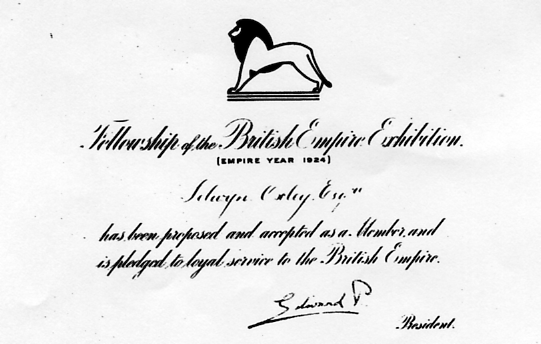 Fellowship of the British Empire Exhibition.
(EMPIRE YEAR 1924)
Selwyn Oxley Esqre
has been proposed and accepted as a Member, and
is pledged to loyal service to the British Empire.
Edward P.
President.